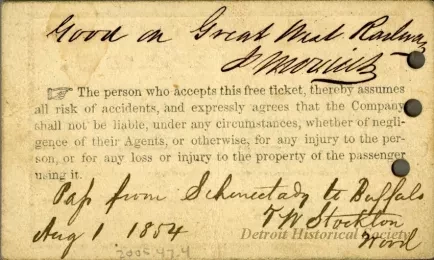 Good on Great West Railway
☞ The person who accepts this free ticket, thereby assumes
all risk of accidents, and expressly agrees that the Company
shall not be liable, under any circumstances, whether of negli-
gence of their Agents, or otherwise, for any injury to the per-
son, or for any loss or injury to the property of the passenger
using it.
Pass from Schenectady to Buffalo
Aug 1 1854 T W Stockton
Detroit Historical Society
2006.47.4